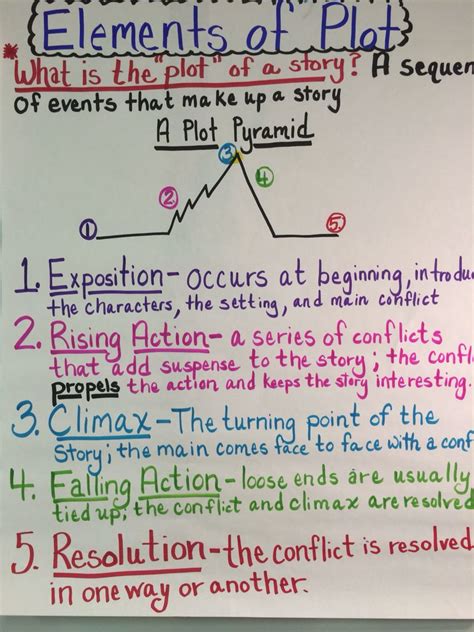 Elements of Plot
*What is the "plot" of a story? A sequen
of events that make up a story
A Plot Pyramid
3
2. 4
1 5.
1. Exposition- occurs at beginning, introdu
the characters, the setting, and main conflict
2. Rising Action- a series of conflicts
that add suspense to the story; the confl
propels the action and keeps the story interesting.
3. Climax-The turning point of the
Story; the main comes face to face with a conf
4. Falling Action-loose ends are usually
tied up; the conflict and climax are resolved
5. Resolution-the conflict is resolved
in one way or another.